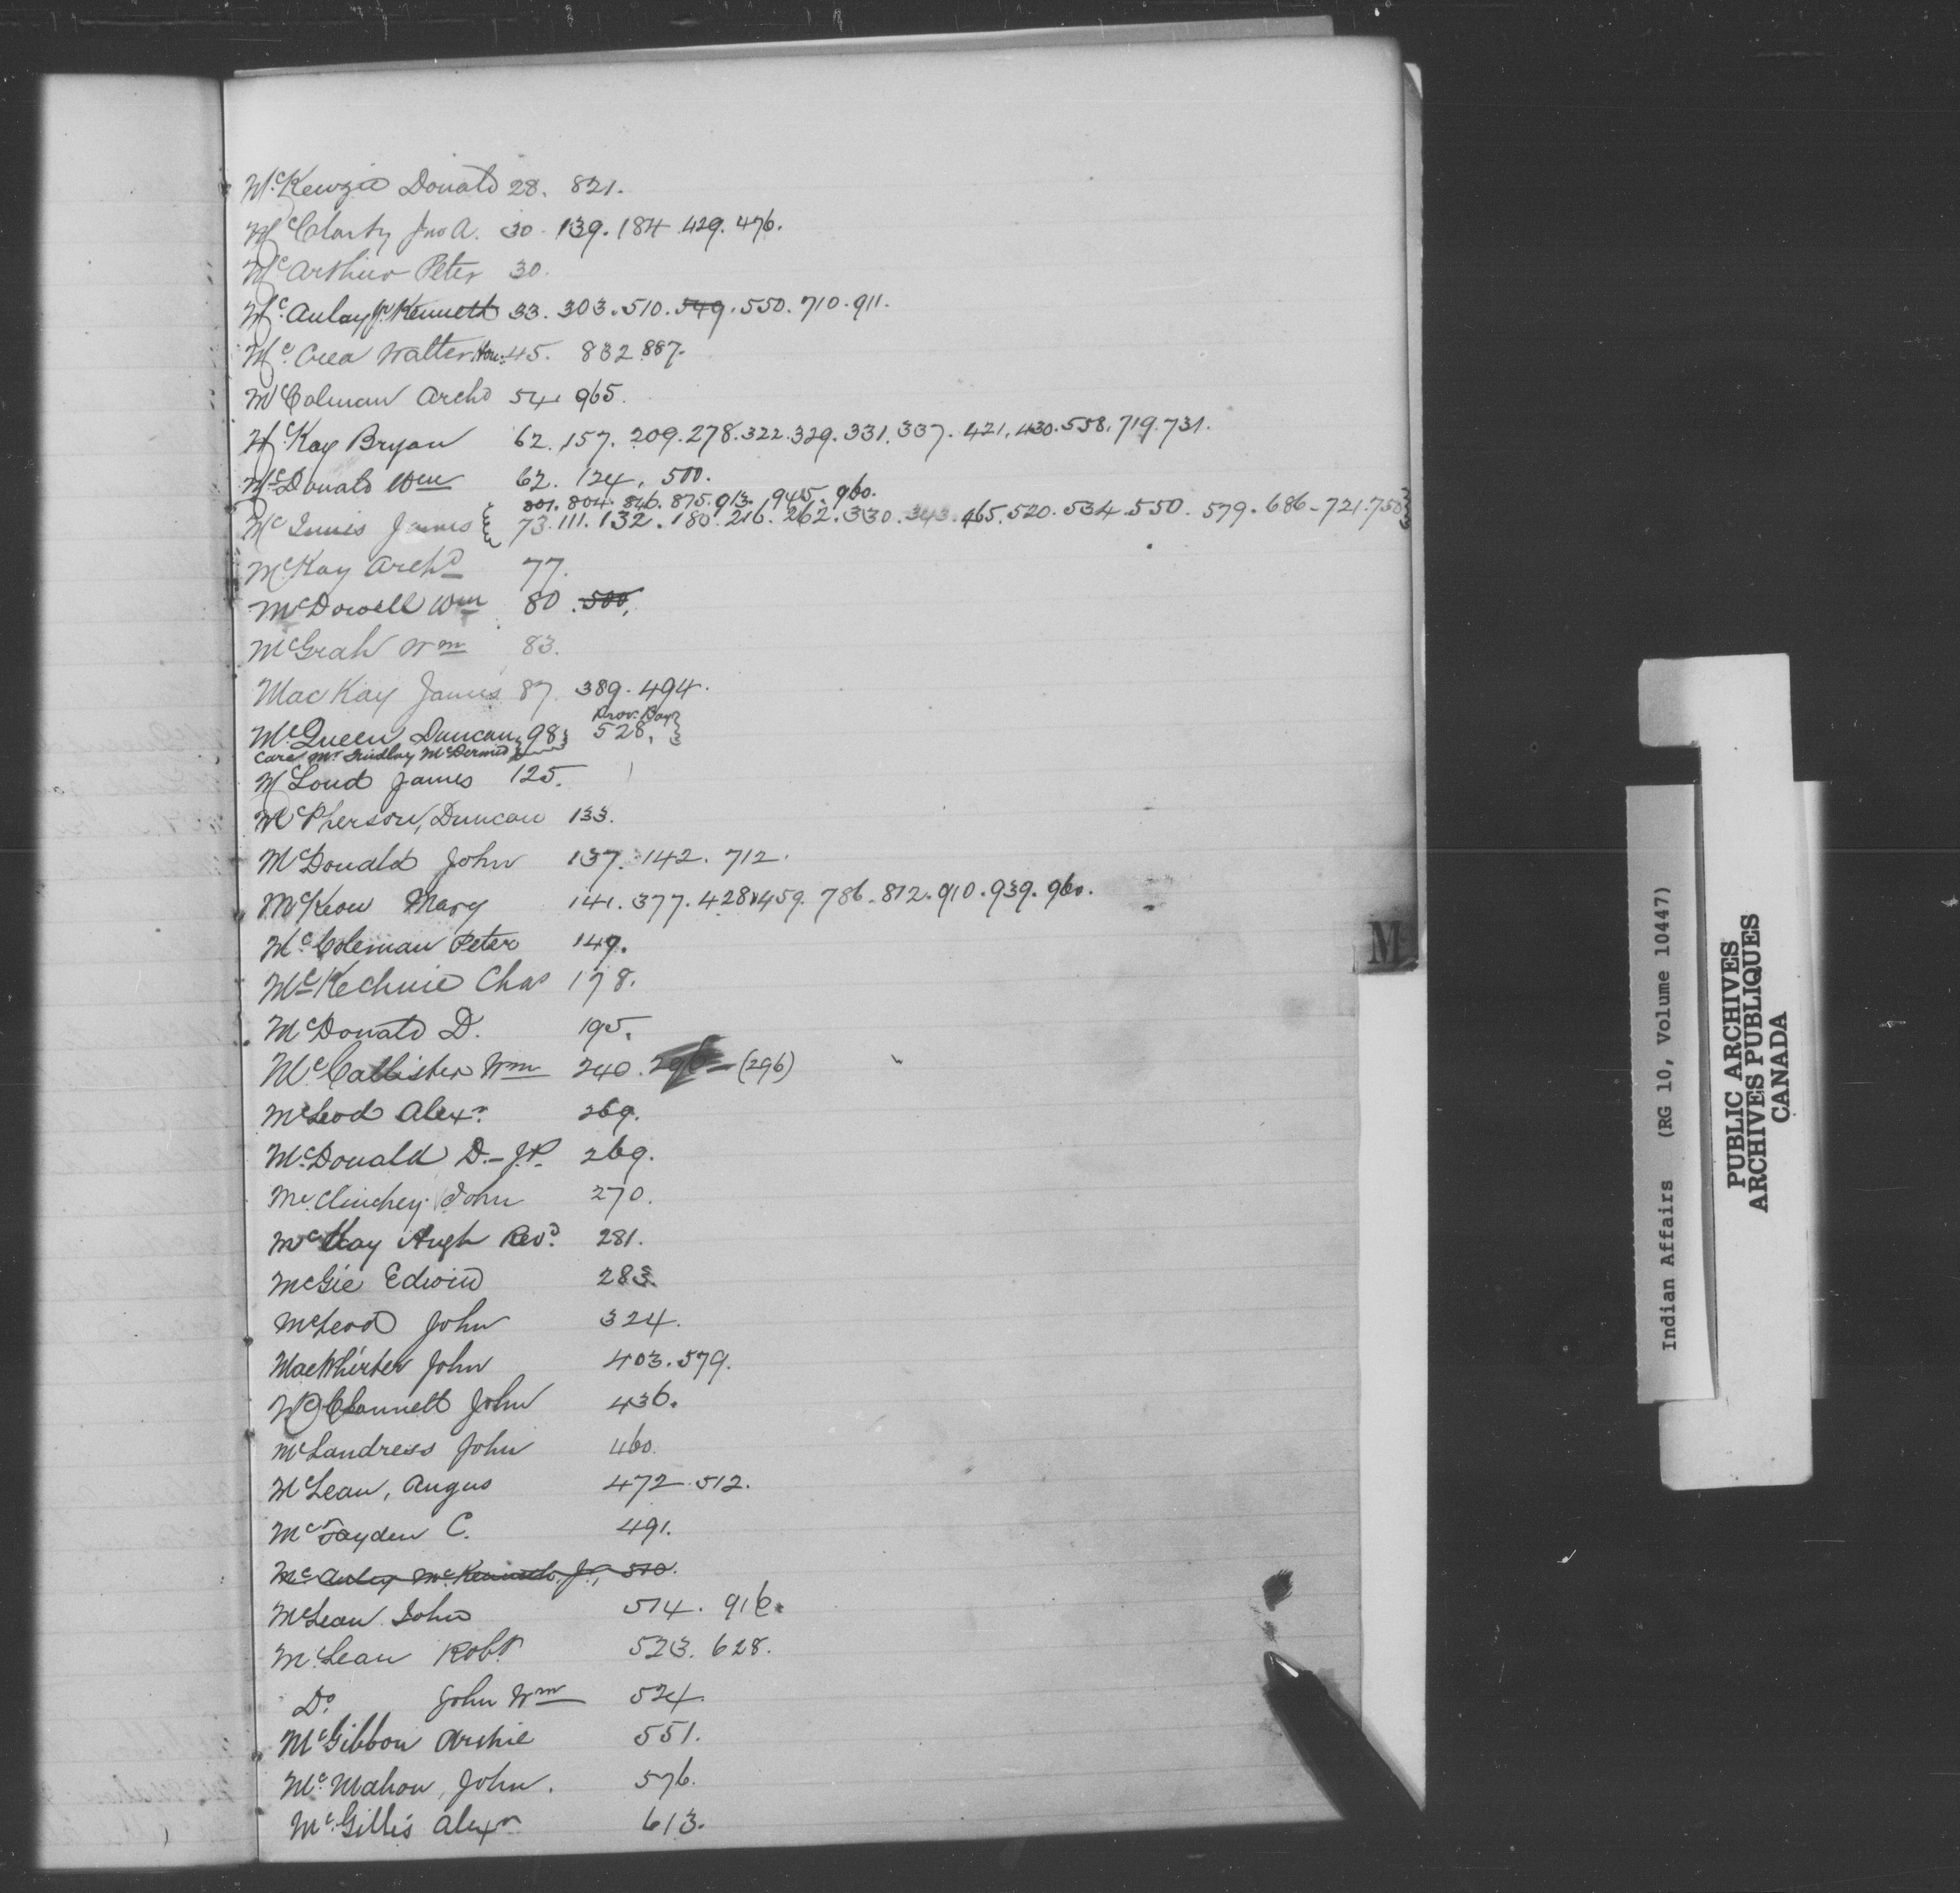 McKenzie Donald 28. 821.
McClarty Jno A. 30. 139. 184. 429. 476.
McArthur Peter 30.
McAulay Jr Kenneth 33. 303. 510. 549. 550. 710. 911.
McCrea Walter Hon: 45. 832. 887.
McColman Archd 54. 965.
McKay Bryan 62. 157. 209. 278. 322. 329. 331. 337. 421. 430. 558. 719. 731.
McDonald Wm 62. 124. 500.
801. 804. 846. 875. 913. 945. 960.
McInnis James 73. 111. 132. 180. 216. 262. 330. 343. 465. 520. 534. 550. 579. 686. 721. 758
McKay Archd 77.
McDowell Wm 80. 500.
McGrah Wm 83.
MacKay James 87. 389. 494.
Prov. Bay
McQueen Duncan 98 528.
Care Mr Findlay McDermid
McLoud James 125.
McPherson, Duncan 133.
McDonald John 137. 142. 712.
McKeow Mary 141. 377. 428. 459. 786. 812. 910. 939. 960.
McColeman Peter 149.
McKechnie Chas 178.
McDonald D. 195.
McCallister Wm 240. 296 (296)
McLeod Alexr 269.
McDonald D. - J.P. 269.
McClinchey John 270.
McKay Hugh Revd 281.
McGie Edwin 283.
McLeod John 324.
MacWhirter John 403. 579.
McConnell John 436.
McLandress John 460.
McLean, Angus 472. 512.
McFayden C. 491.
McAuley McKenneth Jr, 510.
McLean John 514. 916.
McLean Robt 523. 628.
Do John Wm 524.
McGibbon Archie 551.
McMahon, John. 576.
McGillis Alexr 613.
M
Indian Affairs (RG 10, Volume 10447)
PUBLIC ARCHIVES
ARCHIVES PUBLIQUES
CANADA